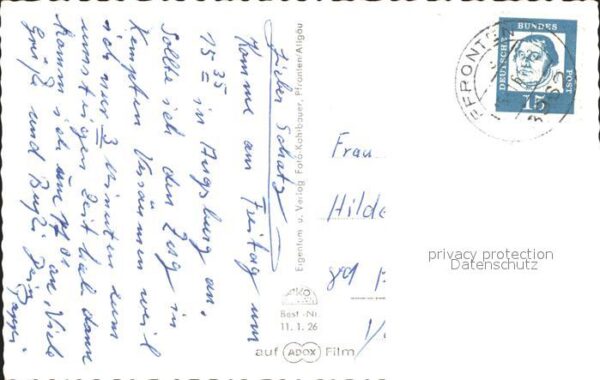 Lieber Schatz
Komme am Freitag um
15 35 in Augsburg an.
Sollte ich den Zug in
Kempten Versäumen weil
ich nur 3 Minuten zum
umsteigen Zeit hab dann
komm ich um 17 01 an, Viele
Grüße und Bußi Dein
Eigentum u. Verlag Foto-Kohlbauer, Pfronten/Allgäu
Best.-Nr.
11. 1. 26
auf ADOX Film
PFRONTEN
DEUTSCHE
BUNDES
POST
15
Frau
Hilde
89
privacy protection
Datenschutz